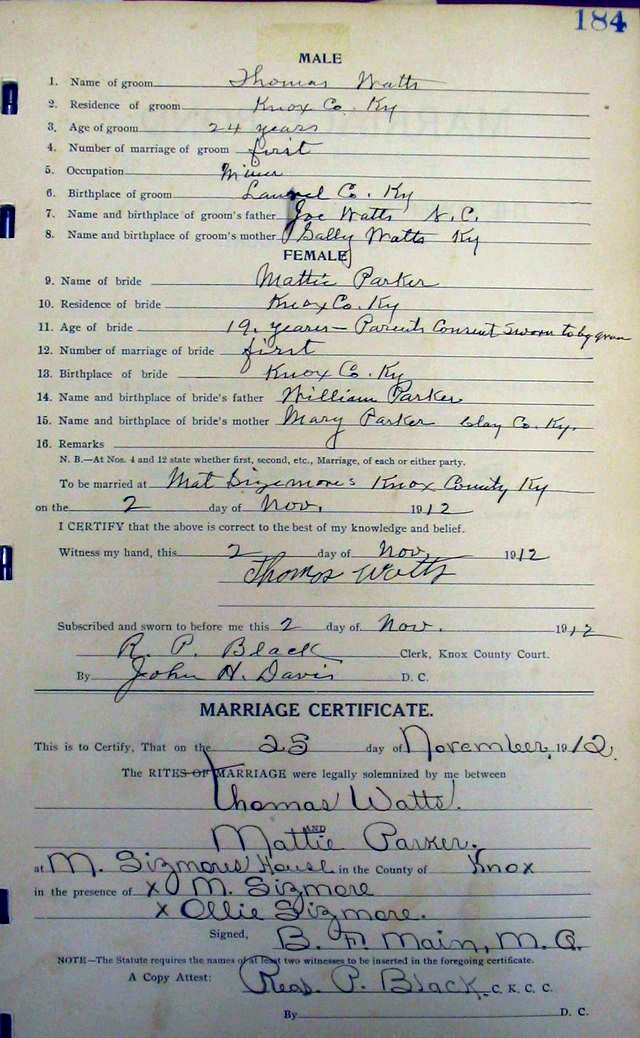 184
MALE
1. Name of groom Thomas Watts
2. Residence of groom Knox Co. Ky
3. Age of groom 24 years
4. Number of marriage of groom first
5. Occupation Miner
6. Birthplace of groom Laurel Co. Ky
7. Name and birthplace of groom's father Joe Watts N.C.
8. Name and birthplace of groom's mother Sally Watts Ky
FEMALE
9. Name of bride Mattie Parker
10. Residence of bride Knox Co. Ky
11. Age of bride 19. years – Parents Consent sworn to by
12. Number of marriage of bride first
13. Birthplace of bride Knox Co. Ky
14. Name and birthplace of bride's father William Parker
15. Name and birthplace of bride's mother Mary Parker Clay Co. Ky.
16. Remarks
N. B.—At Nos. 4 and 12 state whether first, second, etc., Marriage, of each or either party.
To be married at Mat Sizemore's Knox County Ky
on the 2 day of Nov. 1912
I CERTIFY that the above is correct to the best of my knowledge and belief.
Witness my hand, this 2 day of Nov. 1912
Thomas Watts
Subscribed and sworn to before me this 2 day of Nov. 1912
R. P. Black Clerk, Knox County Court.
By John H. Davis D. C.
MARRIAGE CERTIFICATE.
This is to Certify, That on the 25 day of November, 1912.
The RITES OF MARRIAGE were legally solemnized by me between
Thomas Watts.
AND
Mattie Parker.
at M. Sizmores House in the County of Knox
in the presence of x M. Sizmore
x Ollie Sizmore.
Signed, B. F. Main, M. G.
NOTE—The Statute requires the names of at least two witnesses to be inserted in the foregoing certificate.
A Copy Attest: P. Black C. K. C. C.
By D. C.